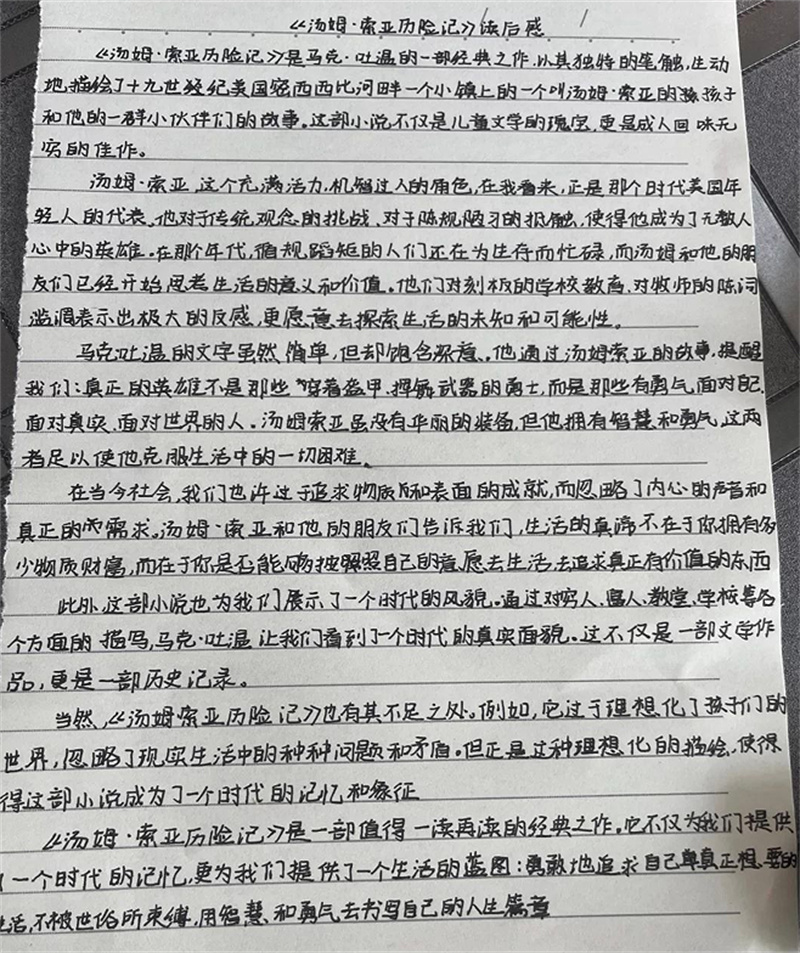 《汤姆·索亚历险记》读后感
《汤姆·索亚历险记》是马克·吐温的一部经典之作,以其独特的笔触,生动
地描绘了十九世纪美国密西西比河畔一个小镇上的一个叫汤姆·索亚的孩子
和他的一群小伙伴们的故事。这部小说不仅是儿童文学的瑰宝,更是成人回味无
穷的佳作。
汤姆·索亚,这个充满活力,机智过人的角色,在我看来,正是那个时代美国年
轻人的代表。他对于传统观念的挑战、对于陈规陋习的抵触,使得他成为了无数人
心中的英雄。在那个年代,循规蹈矩的人们还在为生存而忙碌,而汤姆和他的朋
友们已经开始思考生活的意义和价值。他们对刻板的学校教育,对牧师的陈词
滥调表示出极大的反感,更愿意去探索生活的未知和可能性。
马克吐温的文字虽然简单,但却饱含深意。他通过汤姆索亚的故事,提醒
我们:真正的英雄不是那些穿着盔甲、挥舞武器的勇士,而是那些有勇气面对自己、
面对真实、面对世界的人。汤姆索亚虽没有华丽的装备,但他拥有智慧和勇气,这两
者足以使他克服生活中的一切困难。
在当今社会,我们也许过于追求物质和表面的成就,而忽略了内心的声音和
真正的需求。汤姆·索亚和他的朋友们告诉我们,生活的真谛不在于你拥有多
少物质财富,而在于你是否能够按照自己的意愿去生活,去追求真正有价值的东西
此外,这部小说也为我们展示了一个时代的风貌。通过对穷人、富人、教堂、学校等各
个方面的描写,马克·吐温让我们看到了一个时代的真实面貌。这不仅是一部文学作
品,更是一部历史记录。
当然,《汤姆·索亚历险记》也有其不足之处。例如,它过于理想化了孩子们的
世界,忽略了现实生活中的种种问题和矛盾。但正是这种理想化的描绘,使得
得这部小说成为了一个时代的记忆和象征
《汤姆·索亚历险记》是一部值得一读再读的经典之作。它不仅为我们提供
了一个时代的记忆,更为我们提供了一个生活的蓝图:勇敢地追求自己真正想要的
生活,不被世俗所束缚,用智慧和勇气去书写自己的人生篇章